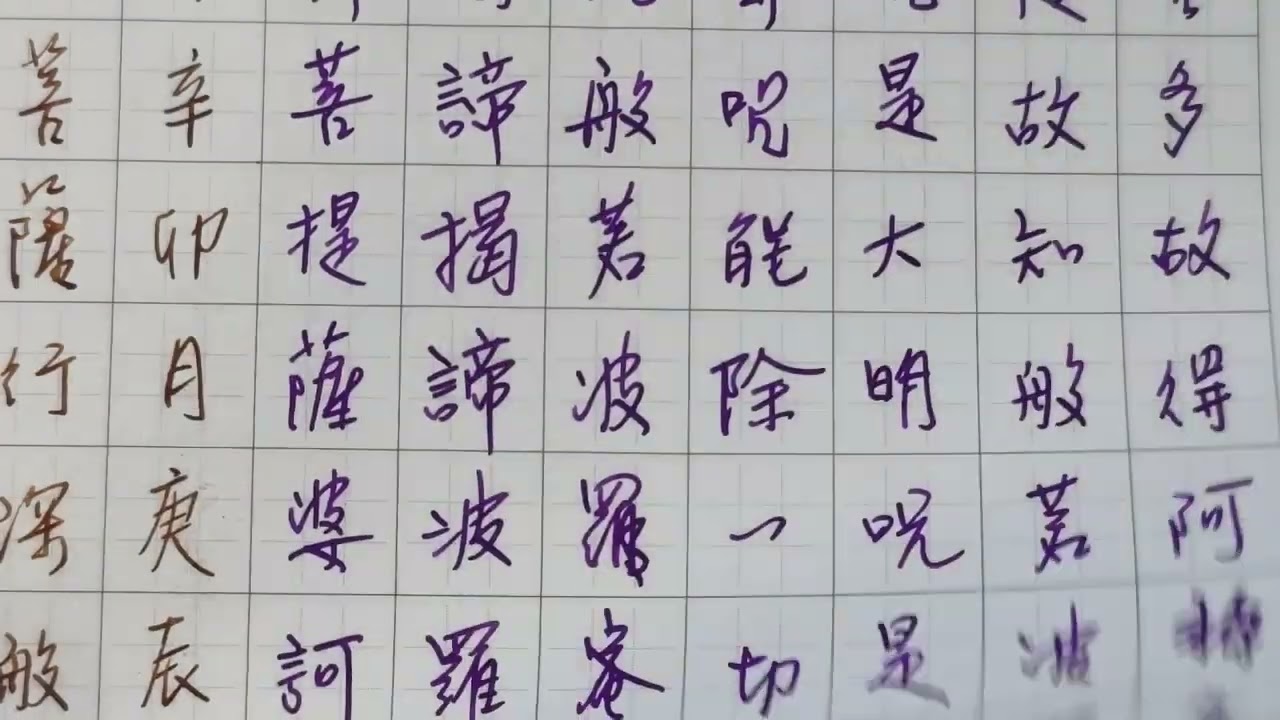 多故得阿
故知般若波
是大明咒是
咒能除一切
般若波羅蜜
諦揭諦波羅
菩提薩婆訶
辛卯月庚辰
菩薩行深般